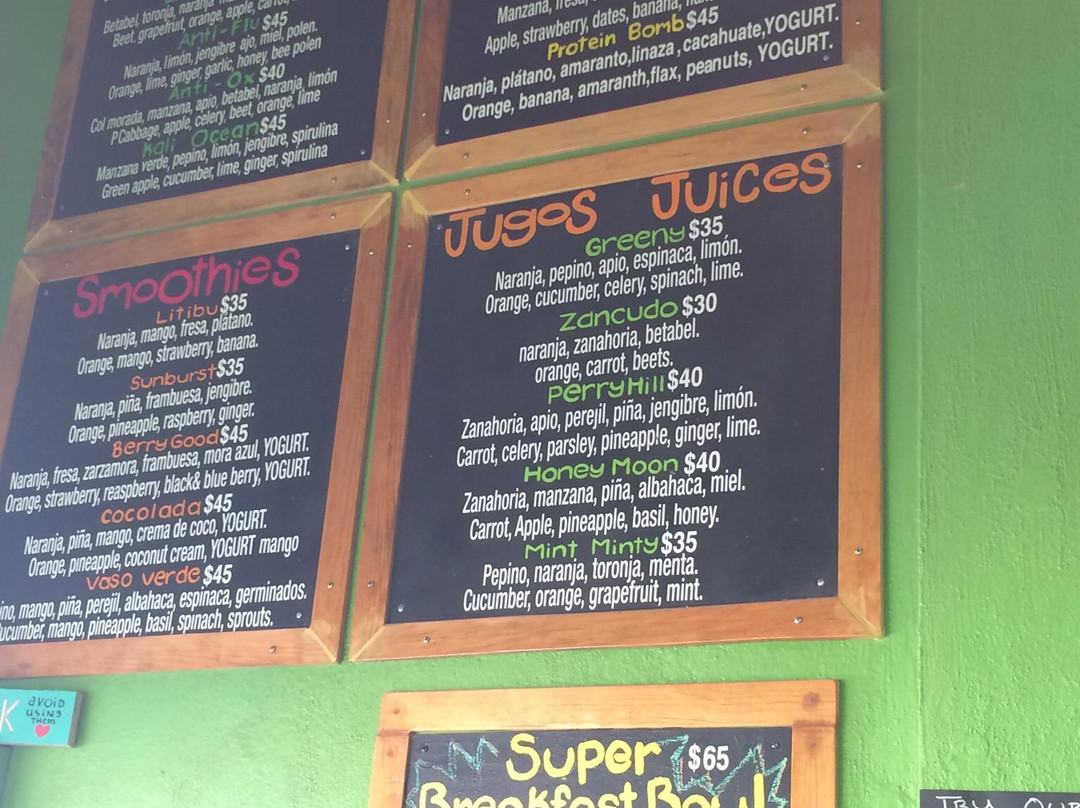 Betabel, toronja, naranja
Beet, grapefruit, orange, apple,
Anti-Flu $45
Naranja, limón, jengibre ajo, miel, polen.
Orange, lime, ginger, garlic, honey, bee polen
Anti-Ox $40
Col morada, manzana, apio, betabel, naranja, limón
PCabbage, apple, celery, beet, orange, lime
Kali Ocean $45
Manzana verde, pepino, limón, jengibre, spirulina
Green apple, cucumber, lime, ginger, spirulina
Manzana,
Apple, strawberry, dates, banana,
Protein Bomb $45
Naranja, plátano, amaranto, linaza, cacahuate, YOGURT.
Orange, banana, amaranth, flax, peanuts, YOGURT.
Smoothies
Litibu $35
Naranja, mango, fresa, plátano.
Orange, mango, strawberry, banana.
Sunburst $35
Naranja, piña, frambuesa, jengibre.
Orange, pineapple, raspberry, ginger.
Berry Good $45
Naranja, fresa, zarzamora, frambuesa, mora azul, YOGURT.
Orange, strawberry, reaspberry, black& blue berry, YOGURT.
Cocolada $45
Naranja, piña, mango, crema de coco, YOGURT.
Orange, pineapple, coconut cream, YOGURT mango
Vaso Verde $45
ino, mango, piña, perejil, albahaca, espinaca, germinados.
ucumber, mango, pineapple, basil, spinach, sprouts.
Jugos Juices
Greeny $35
Naranja, pepino, apio, espinaca, limón.
Orange, cucumber, celery, spinach, lime.
Zancudo $30
naranja, zanahoria, betabel.
orange, carrot, beets.
Perry Hill $40
Zanahoria, apio, perejil, piña, jengibre, limón.
Carrot, celery, parsley, pineapple, ginger, lime.
Honey Moon $40
Zanahoria, manzana, piña, albahaca, miel.
Carrot, Apple, pineapple, basil, honey.
Mint Minty $35
Pepino, naranja, toronja, menta.
Cucumber, orange, grapefruit, mint.
K avoid
using
them
Super $65
Breakfast Bowl
Try Our